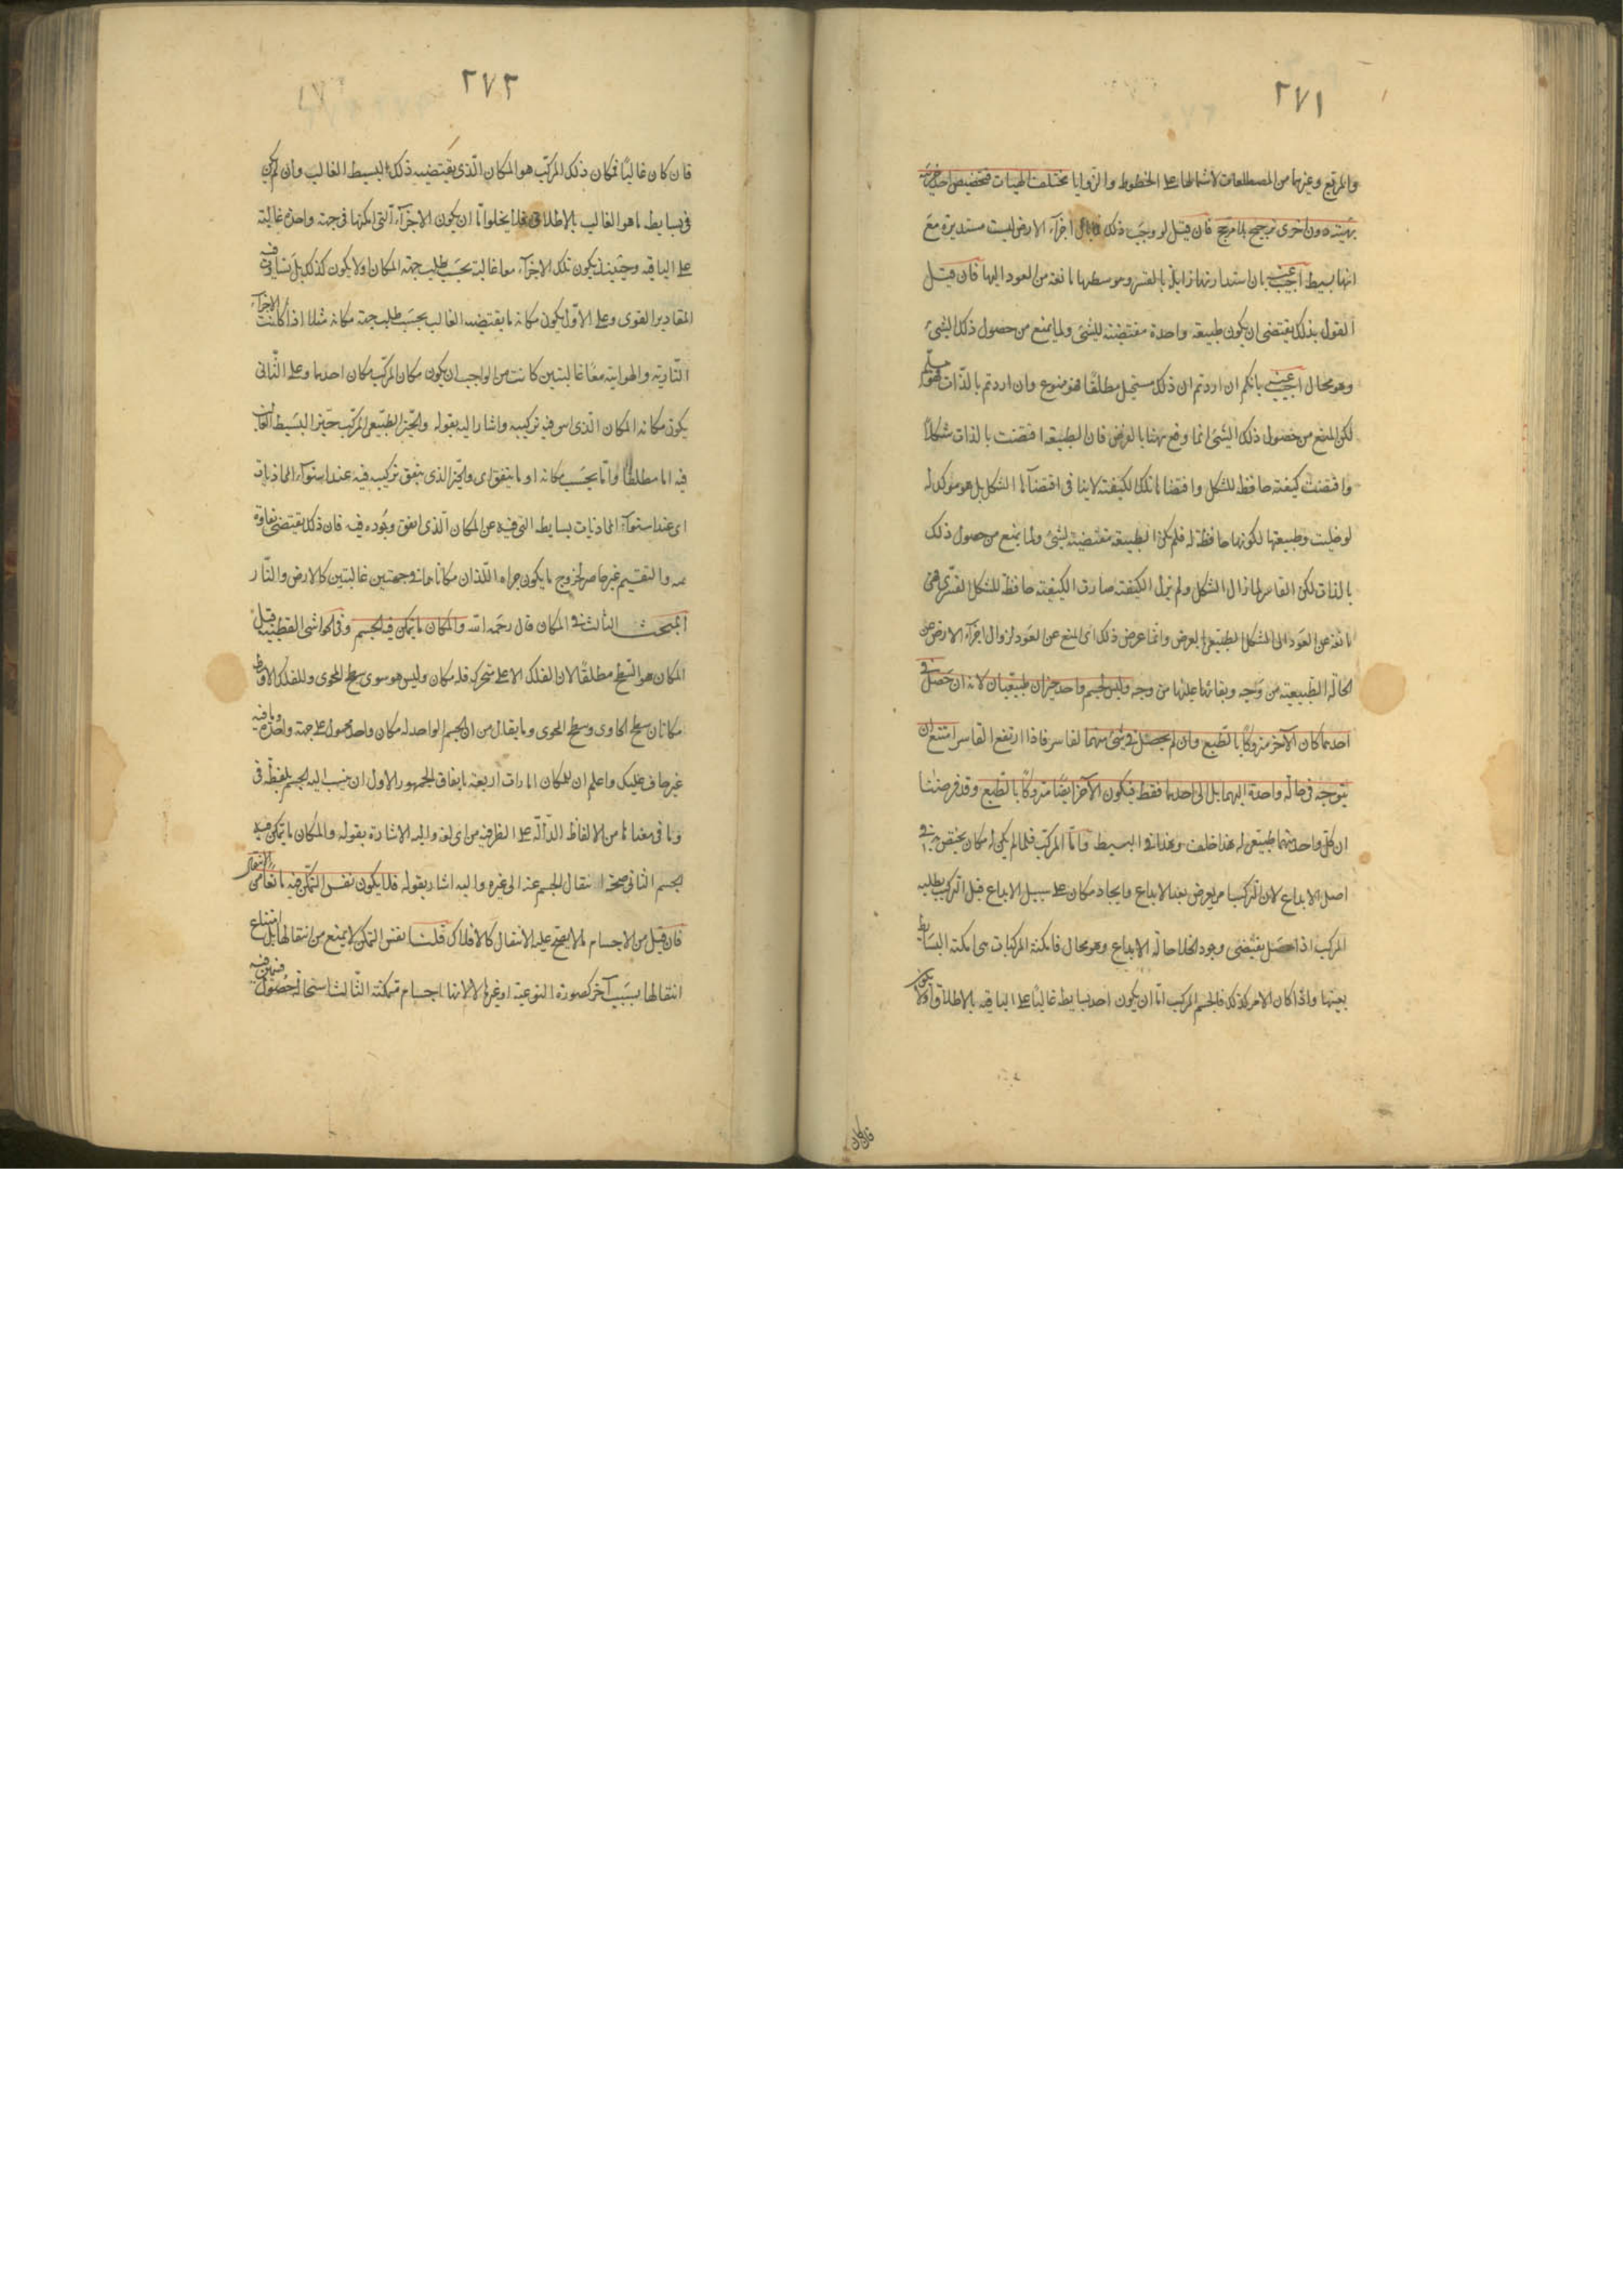 ٢٧١
والمربع وغيرها من المضلعات لاشتمالها على الخطوط والزوايا مختلفة الهيئات فتخصيص احد جزئيه
بهيئة دون اخرى ترجيح بلا مرجح فان قيل لو وجب ذلك اجزاء الارض ليست مستديرة مع
انها بسيط اجيب عنه بان استدارتها زايلة بالقسر ويبوستها مانعة من العود اليها فان قيل
القول بذلك يقتضى ان يكون طبيعة واحدة مقتضية للشئ ولما يمنع من حصول ذلك الشئ
وهو محال اجيب عنه بانكم ان اردتم ان ذلك مستحيل مطلقا فهو ممنوع وان اردتم بالذات فهو مسلم
لكن المنع من حصول ذلك الشئ انما وقع ههنا بالعرض فان الطبيعة اقتضت بالذات شكلا
واقتضت كيفية حافظة للشكل واقتضاها تلك الكيفية لا ينافى اقتضاءها الشكل بل هو مؤكد له
لو خليت وطبيعتها لكونها حافظة له فلم تكن الطبيعة مقتضية لشئ ولما يمنع من حصول ذلك
بالذات لكن القاسر لما ازال الشكل ولم يزل الكيفية صارت الكيفية حافظة للشكل القسرى فهى
مانعة عن العود الى الشكل الطبيعى بالعرض وانما عرض ذلك اى المنع عن العود لزوال اجزاء الارض عن
الحالة الطبيعية من وجه وبقائها عليها من وجه وليس لجسم واحد حيزان طبيعيان لانه ان حصل فى
احدهما كان الآخر متروكا بالطبع وان لم يحصل فى شئ منهما لقاسر فاذا ارتفع القاسر امتنع ان
يتوجه فى حالة واحدة اليهما بل الى احدهما فقط فيكون الآخر ايضا متروكا بالطبع وقد فرضنا
ان كل واحد منهما طبيعى له هذا خلف وهذا فى البسيط واما المركب فلما لم يكن له مكان يختص به فى
اصل الابداع لان التركيب امر يعرض بعد الابداع وايجاد مكان على سبيل الابداع قبل التركيب يطلبه
المركب اذا حصل يقتضى وجود الخلا حالة الابداع وهو محال فامكنة المركبات هى امكنة البسايط
بعينها واذا كان الامر كذلك فالجسم المركب اما ان يكون احد بسايطه غالبا على الباقية بالاطلاق او لا يكون
فان كان
٢٧٢
فان كان غالبا فمكان ذلك المركب هو المكان الذى يقتضيه ذلك البسيط الغالب وان لم يكن
فى بسايطه ما هو الغالب بالاطلاق فلا يخلوا اما ان يكون الاجزاء التى امكنتها فى جهة واحدة غالبة
على الباقية وحينئذ يكون تلك الاجزاء معا غالبة بحسب طلب جهة المكان او لا يكون كذلك بل تساوى فيه
المقادير القوى وعلى الاول يكون مكانه ما يقتضيه الغالب بحسب طلب جهة مكانه مثلا اذا كانت الاجزاء
النارية والهوائية معا غالبتين كانت من الواجب ان يكون مكان المركب مكان احدهما وعلى الثانى
يكون مكانه المكان الذى اسس فيه تركيبه واشار اليه بقوله والحيز الطبيعى للمركب حيز البسيط الغالب
فيه اما مطلقا واما بحسب مكانه او ما يتفق اى والحيز الذى يتفق تركيبه فيه عند استواء المحاذيات
اى عند استواء المحاذيات بسايطه التى فيه عن المكان الذى اتفق وجوده فيه فان ذلك يقتضى بقاؤه
ثمه والتقسيم غير حاصر لخروج ما يكون جزاه اللذان مكاناهما فى جهتين غالبتين كالارض والنار
المبحث الثالث فى المكان قال رحمه الله والمكان ما يتمكن فيه الجسم وفى الحواشى القطبية قيل
المكان هو السطح مطلقا لان الفلك الاعلى متحرك فله مكان وليس هو سوى سطح المحوى وللفلك الاوسط
مكانان سطح الحاوى وسطح المحوى وما يقال من ان الجسم الواحد له مكان واحد محمول على جهة واحدة وما فيه
غير خاف عليك واعلم ان للمكان امارات اربعة باتفاق الجمهور الاول ان ينسب اليه الجسم بلفظة فى
وما فى معناها من الالفاظ الدالة على الظرفية من اى لغة واليه الاشارة بقوله والمكان ما يتمكن فيه
الجسم الثانى صحة انتقال الجسم عنه الى غيره واليه اشار بقوله فلا يكون نفس التمكن فيه مانعا من الانتقال
فان قيل من الاجسام ما لا يصح عليه الانتقال كالافلاك قلنا نفس التمكن لا يمنع من انتقالها بل امتناع
انتقالها بسبب آخر كصورة النوعية او غيرها لا لانها اجسام متمكنة الثالث استحالة حصول جسمين فيه